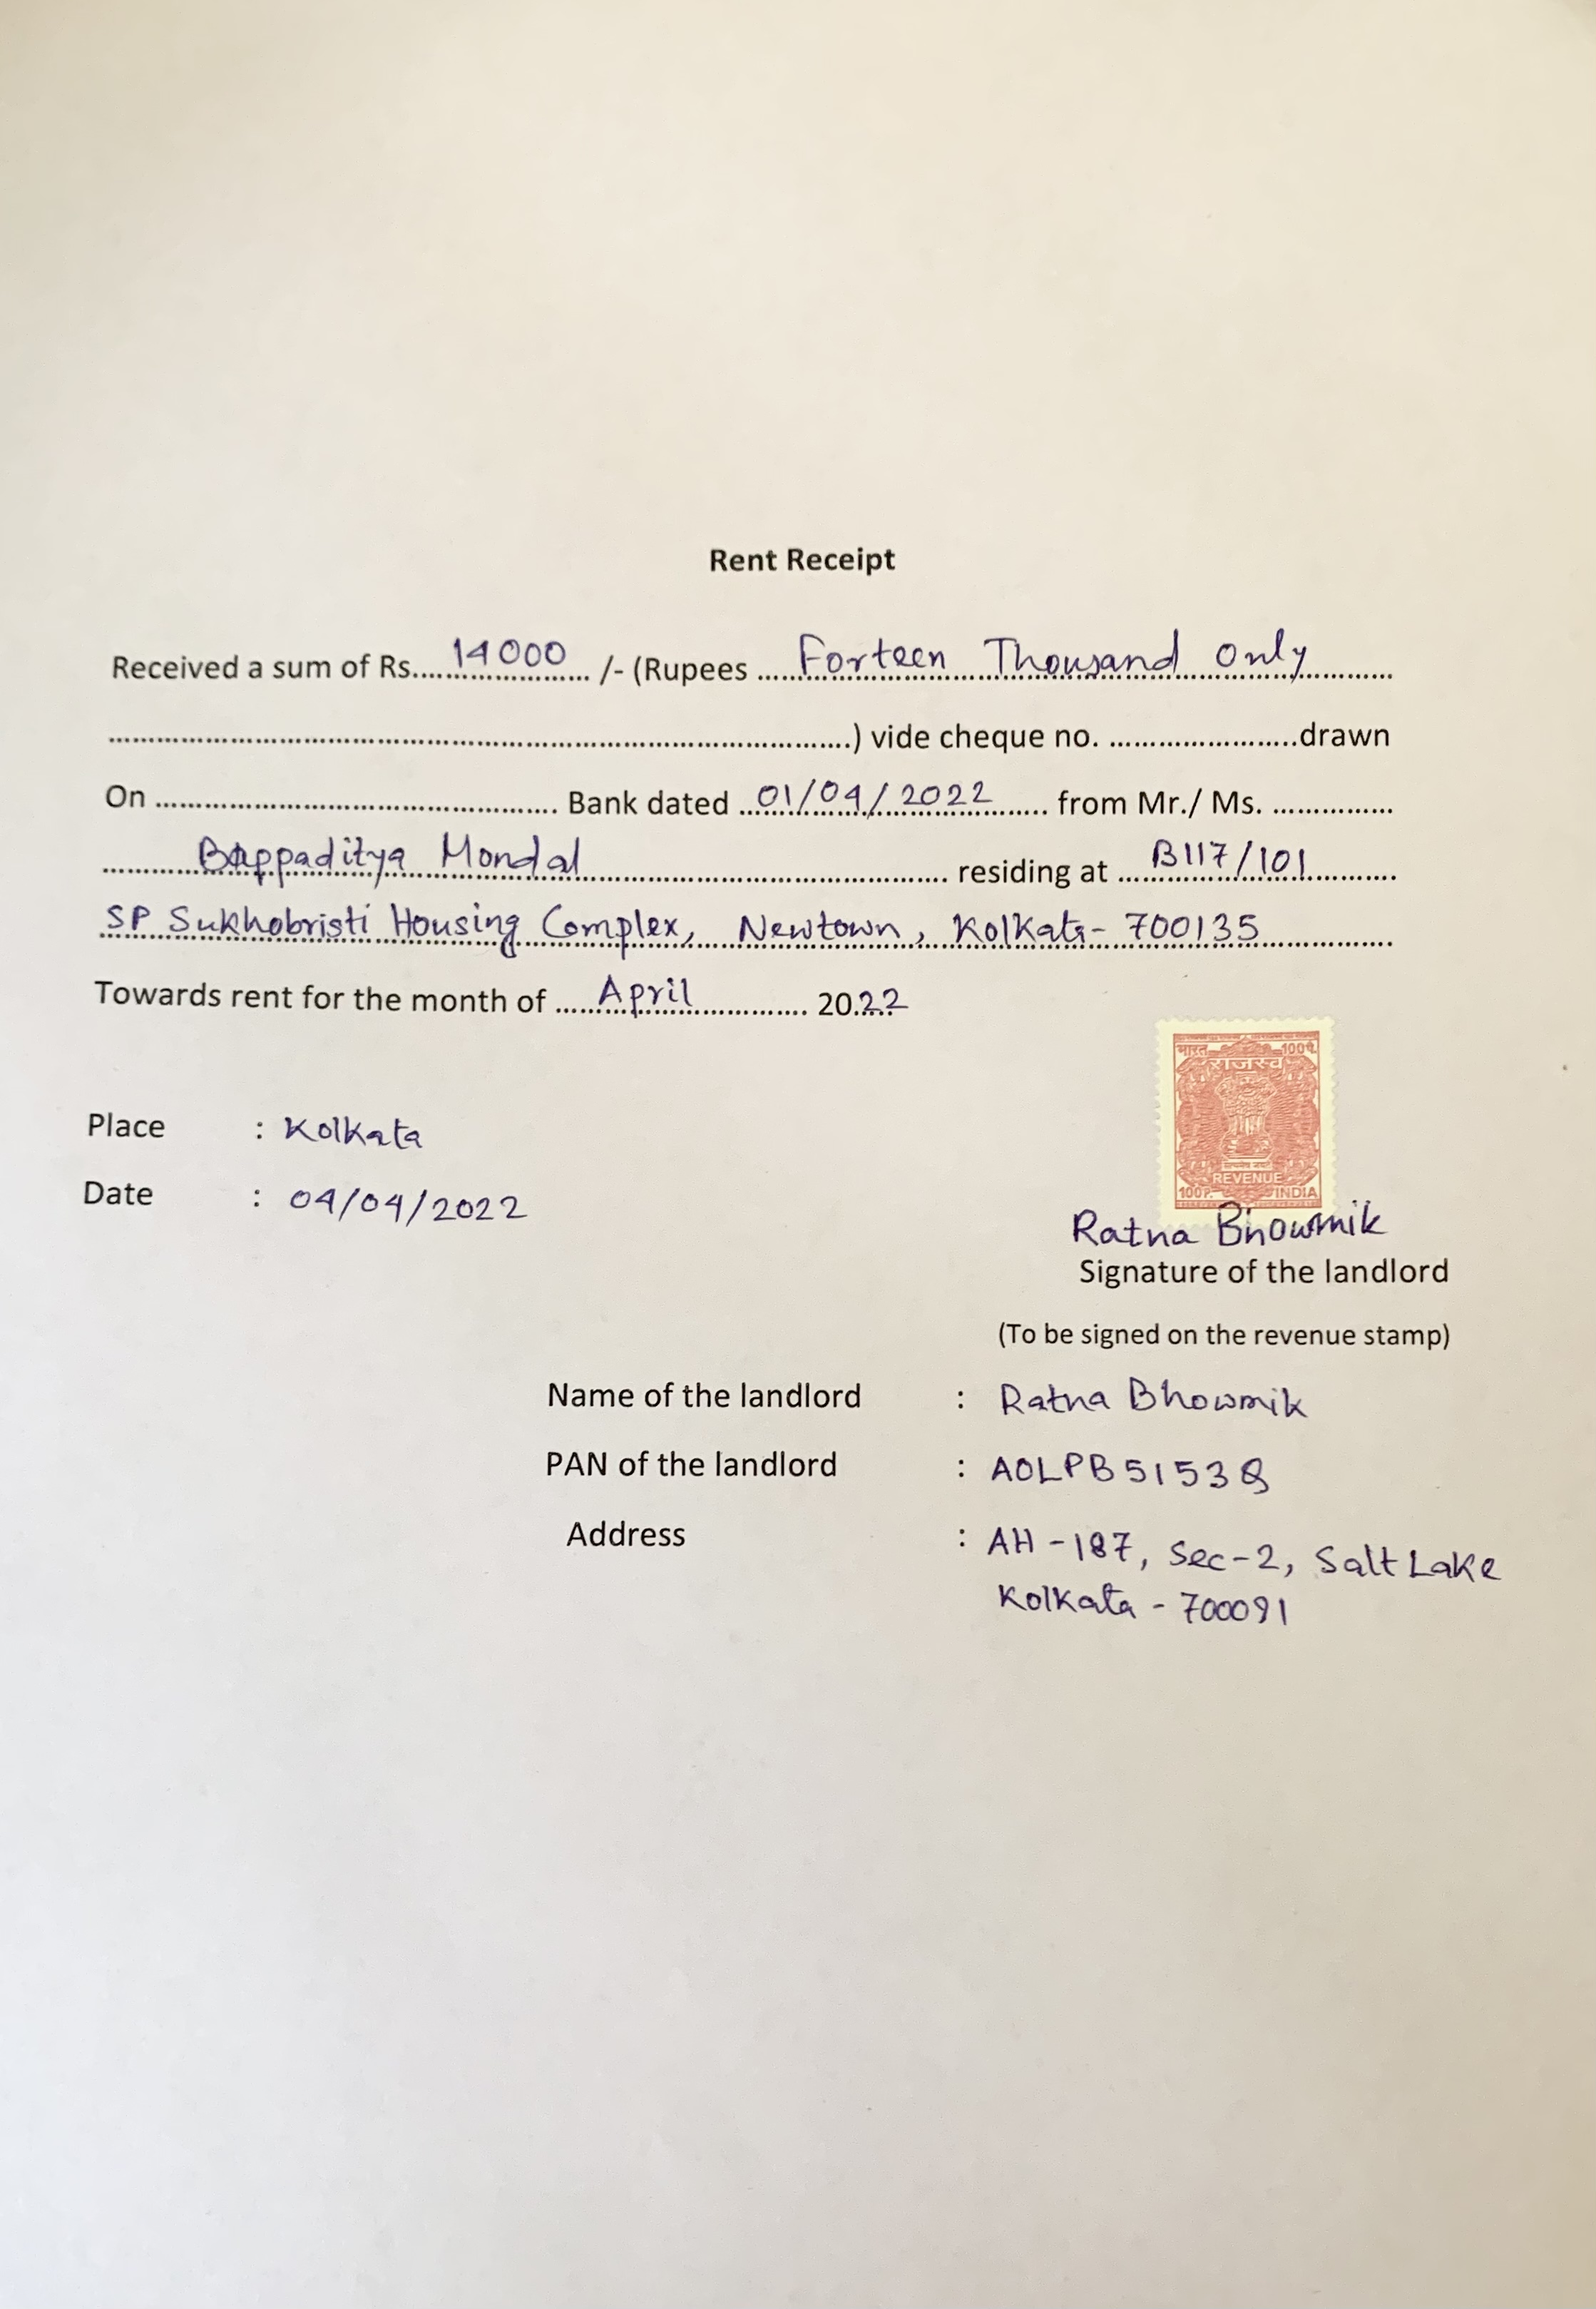 Rent Receipt
Received a sum of Rs....14000..../- (Rupees ....Forteen Thousand Only....
....) vide cheque no. ....drawn
On .... Bank dated ....01/04/2022.... from Mr./ Ms. ....
....Bappaditya Mondal.... residing at ....B117/101....
SP Sukhobristi Housing Complex, Newtown, Kolkata- 700135
Towards rent for the month of ....April.... 2022
भारत 100पै.
राजस्व
सत्यमेव जयते
REVENUE
100P. INDIA
Place : Kolkata
Date : 04/04/2022
Ratna Bhowmik
Signature of the landlord
(To be signed on the revenue stamp)
Name of the landlord : Ratna Bhowmik
PAN of the landlord : AOLPB5153Q
Address : AH-187, Sec-2, Salt Lake
Kolkata - 700091